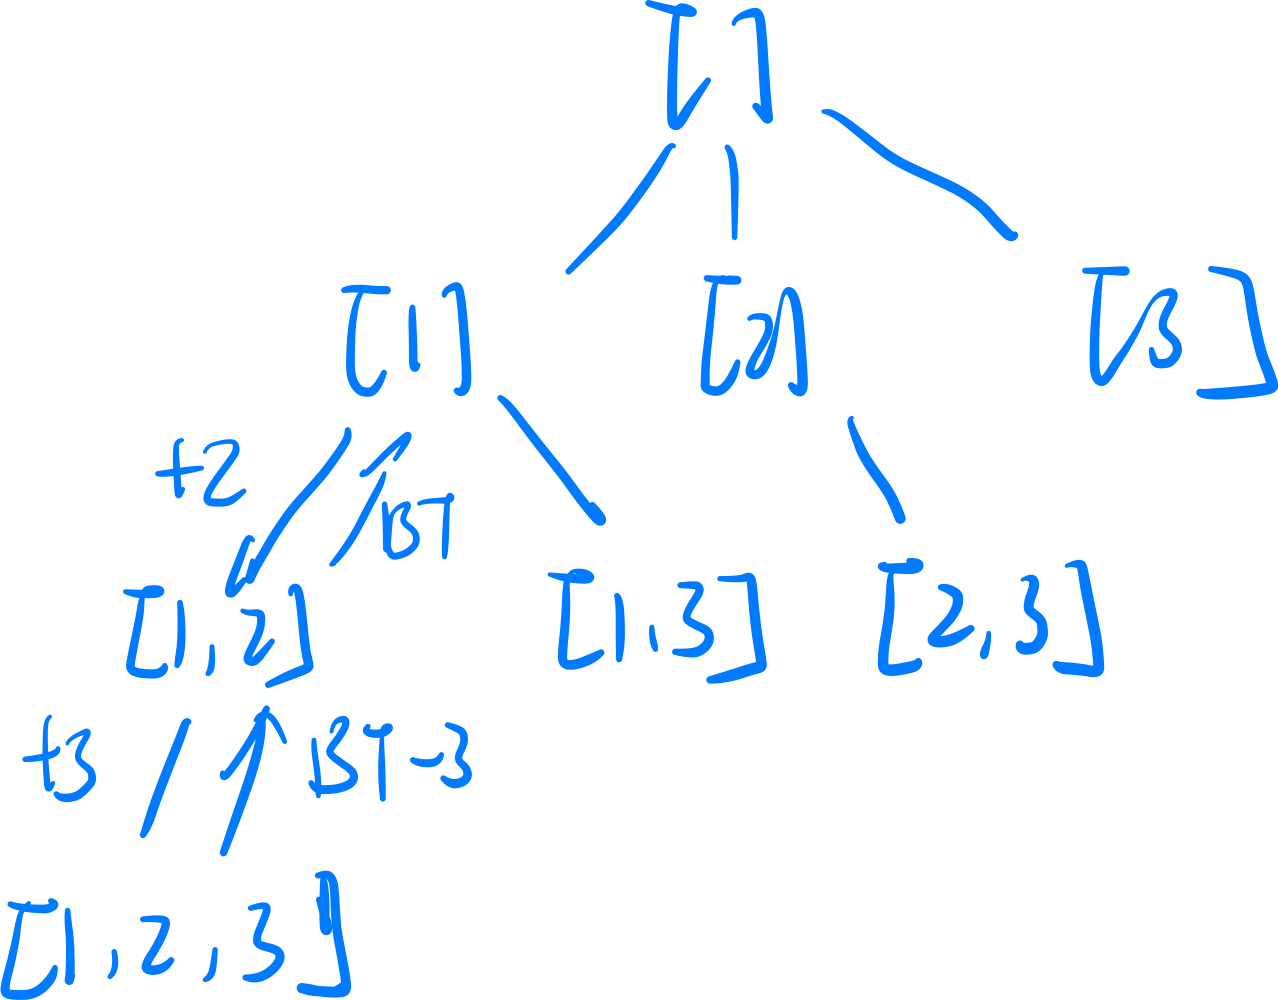 [ ]
[1] [2] [3]
+2
BT
[1,2] [1,3] [2,3]
+3 BT-3
[1,2,3]